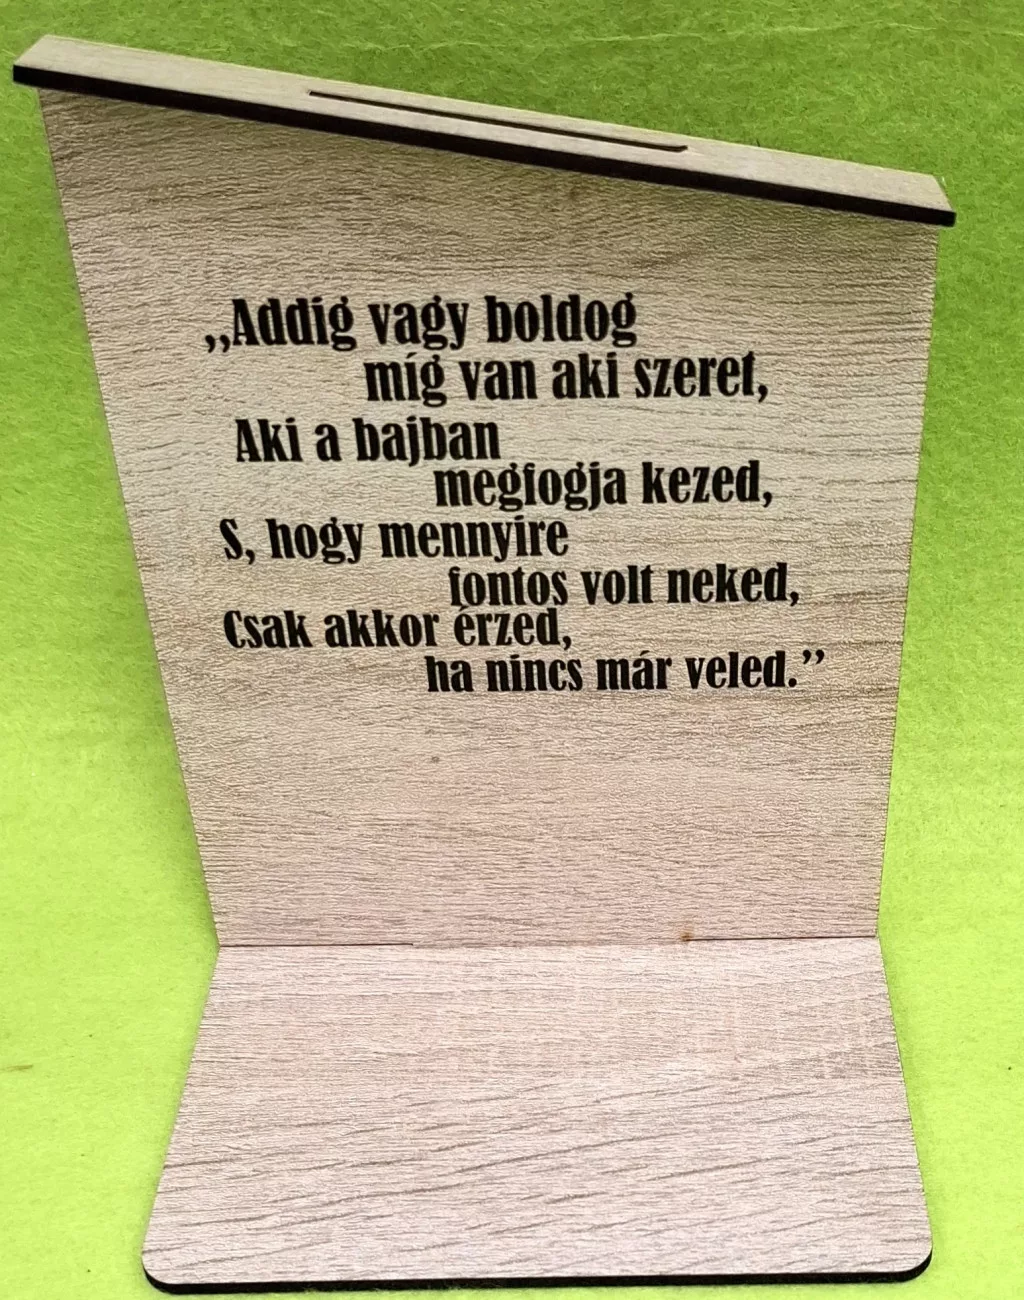 ,,Addig vagy boldog
míg van aki szeret,
Aki a bajban
megfogja kezed,
S, hogy mennyire
fontos volt neked,
Csak akkor érzed,
ha nincs már veled.”